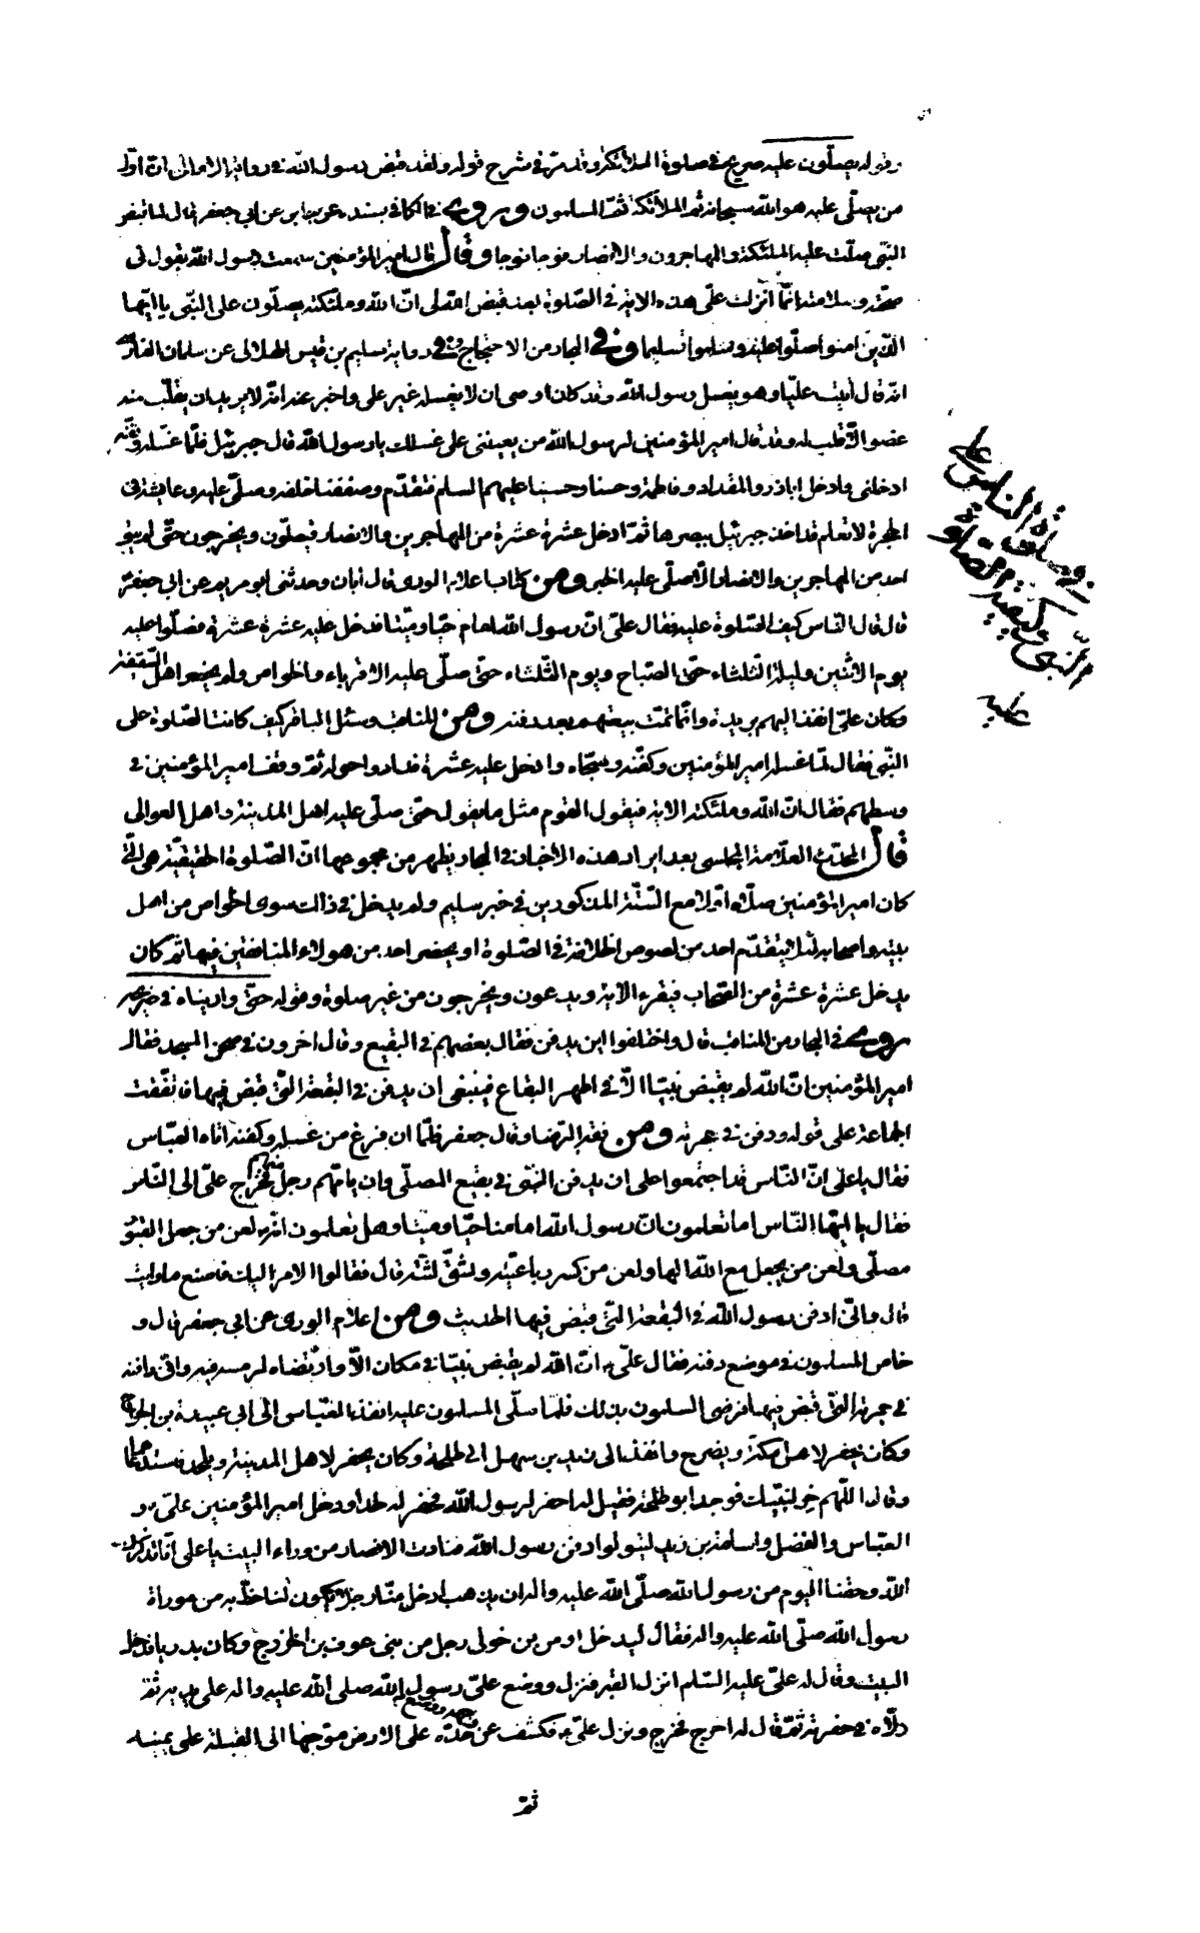 وقوله يصلّون عليه صريح في صلوة الملائكة وقد مرّ في شرح قوله ولقد قبض رسول الله في رواية الامالي انّ اوّل
من يصلّي عليه هو الله سبحانه ثمّ الملائكة ثمّ المسلمون وروى في الكافي بسنده عن جابر عن ابي جعفر قال لما قبض
النبي صلّت عليه الملئكة والمهاجرون والانصار فوجا فوجا وقال قال امير المؤمنين سمعت رسول الله يقول في
صحّته وسلامته انّما انزلت عليّ هذه الاية في الصّلوة بعد قبض الله لي انّ الله وملئكته يصلّون على النّبي يا ايّها
الّذين امنوا صلّوا عليه وسلّموا تسليما وفي البحار من الاحتجاج وفي رواية سليم بن قيس الهلالي عن سلمان الفارسي
انّه قال اتيت عليّا وهو يغسل رسول الله وقد كان اوصى ان لا يغسله غير علي واخبر عنه انّه لا يريد ان يقلّب منه
عضوا الّا قلب له وقد قال امير المؤمنين لرسول الله من يعينني على غسلك يا رسول الله قال جبرئيل فلمّا غسّله وكفّنه
ادخلني وادخل اباذر والمقداد وفاطمة وحسنا وحسينا عليهم السلم فتقدّم وصففنا خلفه وصلّى عليه وعايشة في
الحجرة لا تعلم قد اخذ جبرئيل ببصرها ثمّ ادخل عشرة عشرة من المهاجرين والانصار فيصلّون ويخرجون حتّى لم يبق
احد من المهاجرين والانصار الّا صلّى عليه الخبر ومن كتاب اعلام الورى قال ابان وحدثني ابو مريم عن ابي جعفر
قال قال الناس كيف الصّلوة عليه فقال عليّ انّ رسول الله امام حيّا وميّتا فدخل عليه عشرة عشرة فصلّوا عليه
يوم الاثنين وليلة الثّلثاء حتّى الصّباح ويوم الثّلثاء حتّى صلّى عليه الاقرباء والخواص ولم يحضر اهل السّقيفة
وكان عليّ انفذ اليهم بريدة وانّما تمّت بيعتهم بعد دفنه ومن المناقب وسئل الباقر كيف كانت الصّلوة على
النّبي فقال لمّا غسله امير المؤمنين وكفّنه وسجّاه وادخل عليه عشرة فداروا حوله ثمّ وقف امير المؤمنين في
وسطهم فقال انّ الله وملئكته الاية فيقول القوم مثل ما يقول حتّى صلّى عليه اهل المدينة واهل العوالي
قال المحدّث العلّامة المجلسي بعد ايراد هذه الاخبار في البحار يظهر من مجموعها انّ الصّلوة الحقيقيّة هي الّتي
كان امير المؤمنين صلّاه اوّلا مع السّتّة المذكورين في خبر سليم ولم يدخل في ذلك سوى الخواص من اهل
بيته واصحابه لئلّا يتقدّم احد من لصوص الخلافة في الصّلوة او يحضر احد من هولاء المنافقين فيها ثم كان
يدخل عشرة عشرة من الصّحاب فيقرء الاية ويدعون ويخرجون من غير صلوة وقوله حتّى واريناه في ضريحه
روى في البحار من المناقب قال واختلفوا اين يدفن فقال بعضهم في البقيع وقال اخرون في صحن المسجد فقال
امير المؤمنين انّ الله لم يقبض نبيّا الّا في اطهر البقاع فينبغي ان يدفن في البقعة الّتي قبض فيها فاتّفقت
الجماعة على قوله ودفن في حجرته ومن فقه الرّضا وقال جعفر فلمّا ان فرغ من غسله وكفنه اتاه العبّاس
فقال يا علي انّ النّاس قد اجتمعوا على ان يدفن النّبي في بقيع المصلّى وان يامّهم رجل منهم فخرج عليّ الى النّاس
فقال يا ايّها النّاس اما تعلمون انّ رسول الله امامنا حيّا وميتا وهل تعلمون انّه لعن من جعل القبور
مصلّى ولعن من يجعل مع الله الها ولعن من كسر رباعيّته وشقّ لثته قال فقالوا الامر اليك فاصنع ما رايت
قال وانّي ادفن رسول الله في البقعة الّتي قبض فيها الحديث ومن اعلام الورى عن ابي جعفر قال و
خاص المسلمون في موضع دفنه فقال عليّ انّ الله لم يقبض نبيّا في مكان الّا وارتضاه لرمسه فيه وانّي دافنه
في حجرته الّتي قبض فيها فرضى المسلمون بذلك فلمّا صلّى المسلمون عليه انفذ العبّاس الى ابي عبيدة بن الجراح
وكان يحفر لاهل مكّة ويضرح وانفذ الى زيد بن سهل ابي طلحة وكان يحفر لاهل المدينة ويلحد فاستدعاهما
وقال اللّهم خر لنبيّك فوجد ابو طلحة فقيل له احفر لرسول الله فحفر له لحدا ودخل امير المؤمنين عليّ و
العبّاس والفضل واسامة بن زيد ليتولّوا دفن رسول الله فنادت الانصار من وراء البيت يا علي انّا نذكرك
الله وحقنا اليوم من رسول الله صلّى الله عليه واله ان يذهب ادخل منّا رجلا يكون لنا حظّ به من مواراة
رسول الله صلّى الله عليه واله فقال ليدخل اوس بن خولى رجل من بني عوف بن الخزرج وكان بدريا فدخل
البيت وقال له عليّ عليه السّلام انزل القبر فنزل ووضع عليّ رسول الله صلى الله عليه واله على يديه ثمّ
دلّاه في حفرته ثمّ قال له اخرج فخرج ونزل عليّ فكشف عن وجهه ووضع خدّه على الارض موجّها الى القبلة على يمينه
ثمّ
في صلوة الناس على
النّبي وكيفيّة الصّلوة
عليه